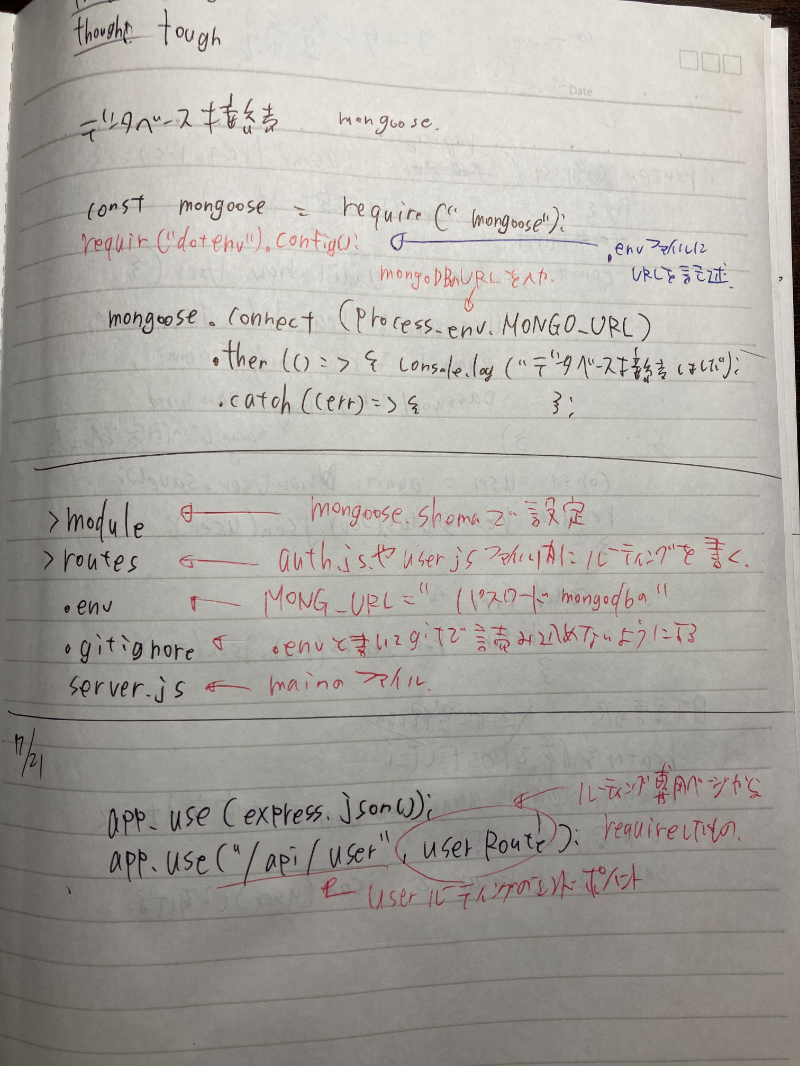 thought tough
Date
データベース接続 mongoose.
const mongoose = require("mongoose");
requir("dotenv").config();
.envファイルに
URLを記述.
mongoDBのURLを入力.
mongoose.connect (process.env.MONGO_URL)
.then(() => { console.log("データベース接続しました");
.catch((err) => { };
>module ← mongoose.shemaで設定
>routes ← auth.jsやuser.jsファイル別にルーティングを書く.
.env ← MONG_URL = "パスワード mongodba"
.gitignore ← .envと書いてgitで読み込めないようにする
server.js ← mainのファイル.
7/21
ルーティング専用ページから
requireしたもの.
app.use (express.json());
app.use("/api/user", userRoute);
← userルーティングのエンドポイント